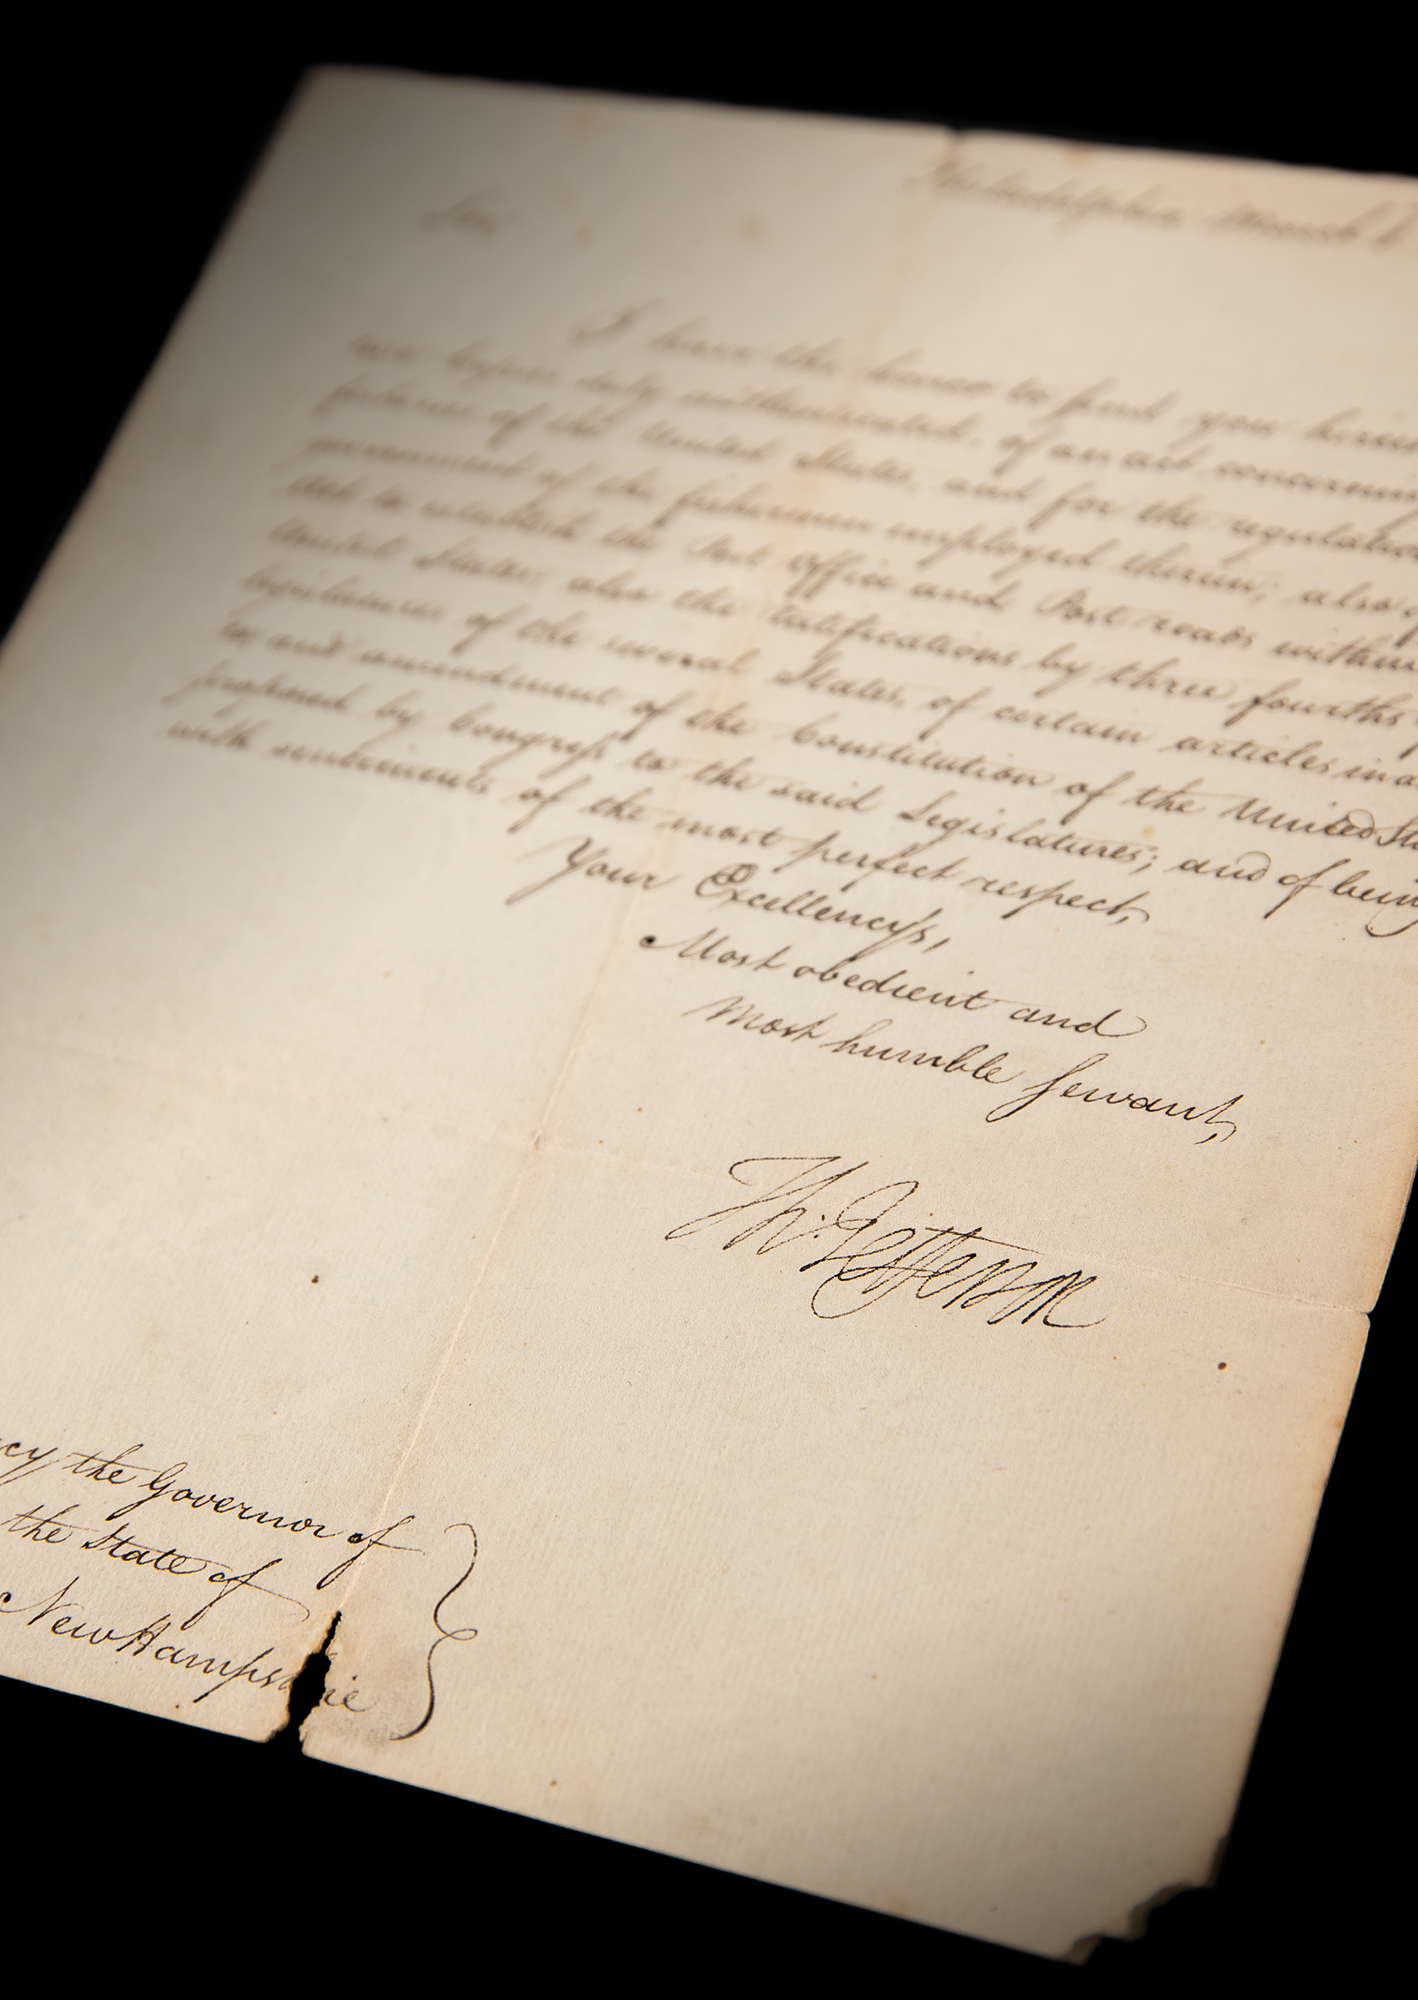 Philadelphia March
Sir,
I have the honor to send you herein
two copies duly authenticated, of an act concerning
fisheries of the United States, and for the regulation
government of the fishermen employed therein; also
Act to establish the Post Office and Post roads within
United States; also the ratifications by three fourths
legislatures of the several States, of certain articles in
to and amendment of the Constitution of the United Sta
proposed by Congress to the said Legislatures; and of being
with sentiments of the most perfect respect,
Your Excellency's,
Most obedient and
Most humble Servant,
Th: Jefferson
cy the Governor of
the State of
New Hampshie